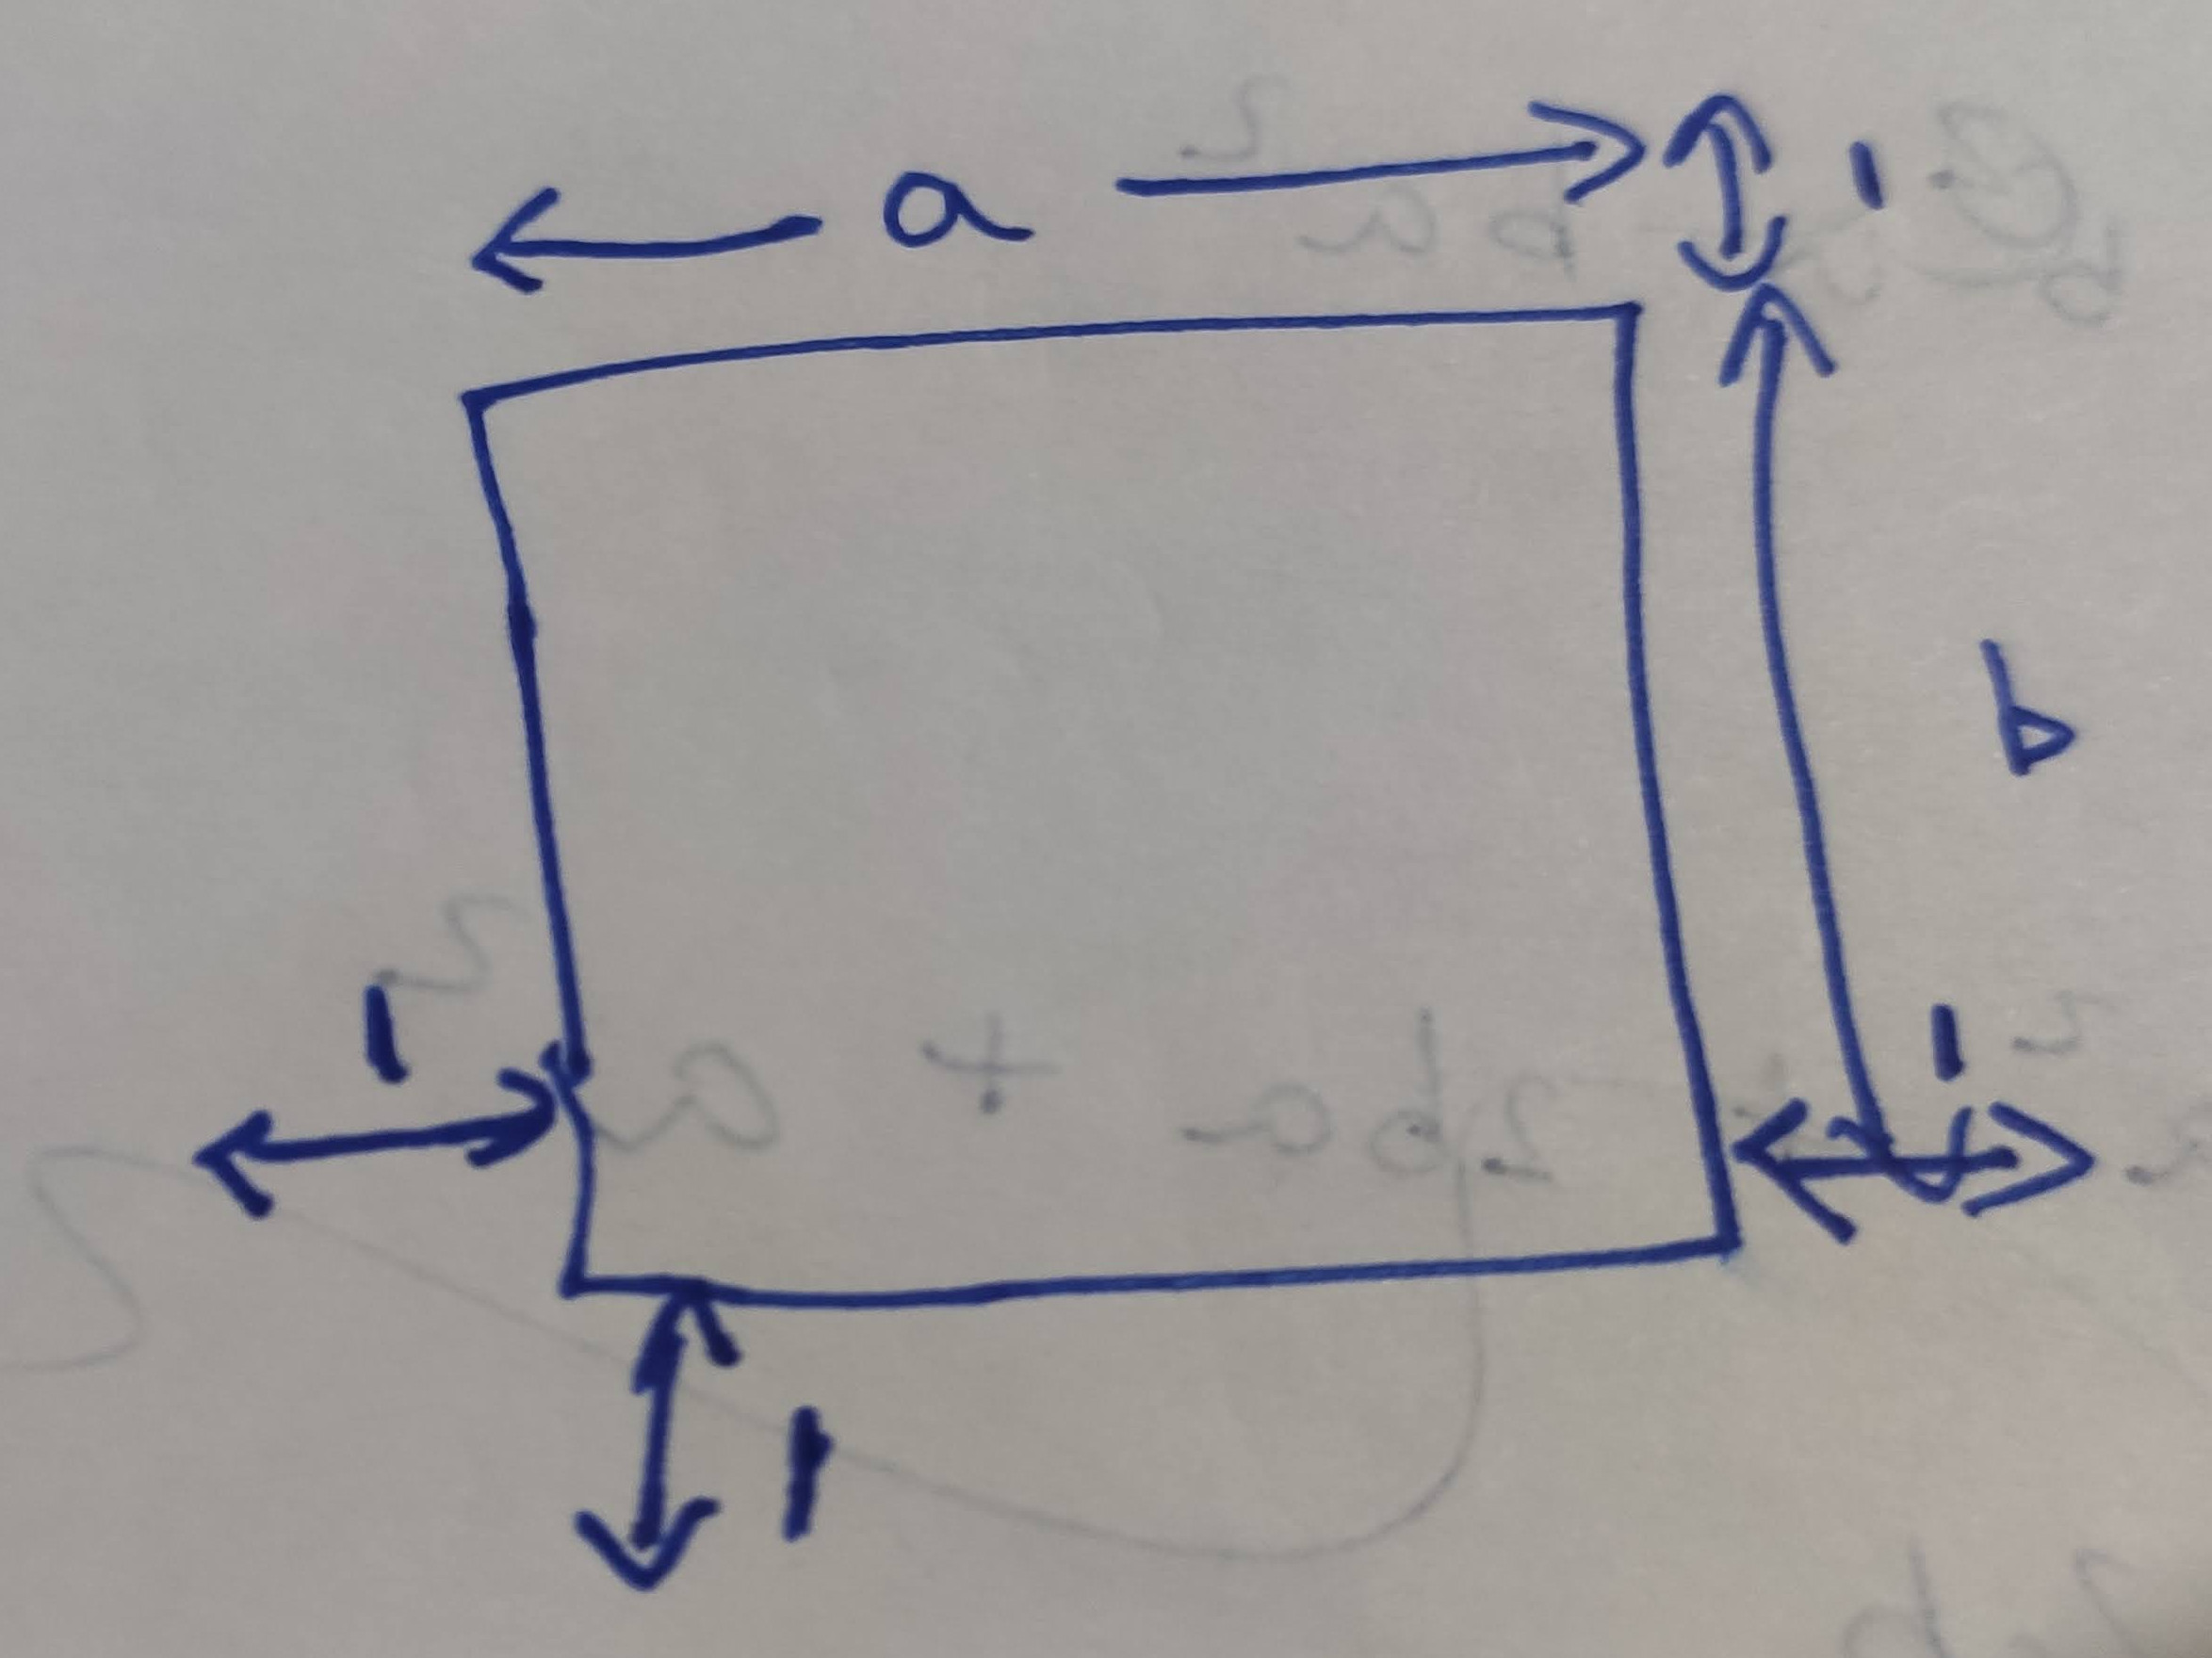 a 1
b
1 1
1